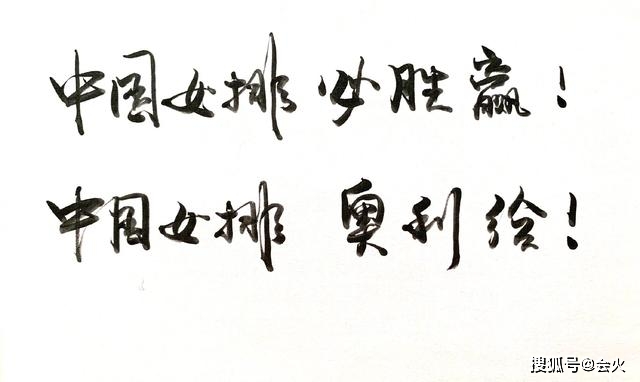 中国女排 必胜赢！
中国女排 奥利给！
搜狐号@会火